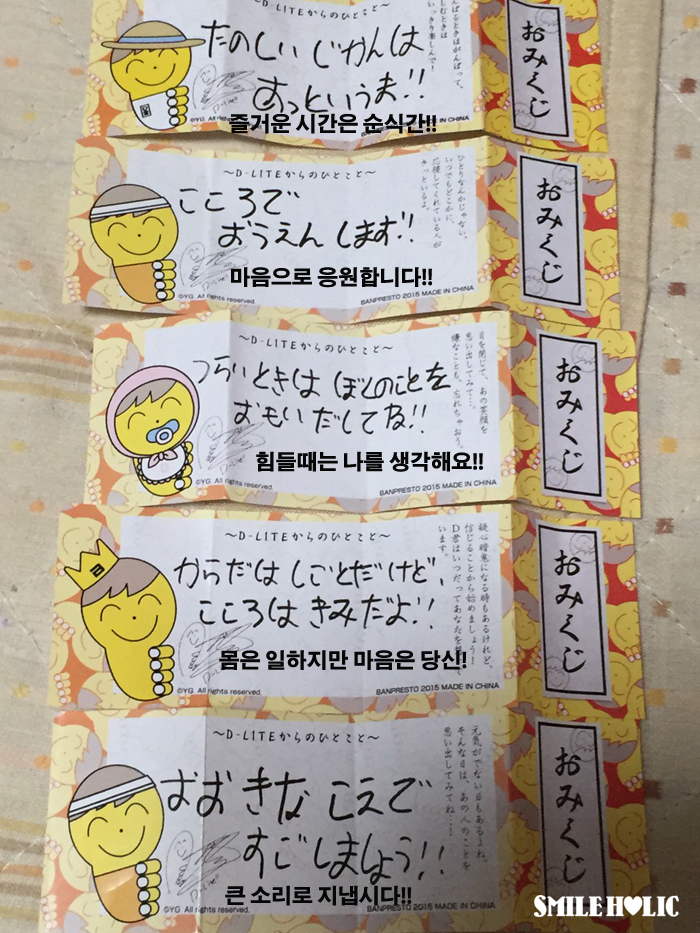 んばるときはがんばって、
しむときは
いっきり楽しんで！
たのしい じかんは
あっというま!!
즐거운 시간은 순식간!!
©YG. All
IN CHINA
おみくじ
～D-LITEからのひとこと～
ひとりなんかじゃない。
いつでもどこかに、
応援してくれている人が
きっといるよ。
こころで
おうえん します!!
마음으로 응원합니다!!
©YG. All rights reserved.
BANPRESTO 2015 MADE IN CHINA
おみくじ
～D-LITEからのひとこと～
目を閉じて、あの笑顔を
思い出してみて…。
嫌なことも、忘れちゃおう。
つらいときは ぼくのことを
おもい だしてね!!
힘들때는 나를 생각해요!!
©YG. All rights reserved.
BANPRESTO 2015 MADE IN CHINA
おみくじ
～D-LITEからのひとこと～
疑心暗鬼になる時もあるけれど、
信じることから始めましょう！
D君はいつだってあなたを
います。
からだは しごとだけど、
こころは きみだよ!!
몸은 일하지만 마음은 당신!
©YG. All rights reserved.
BANPRESTO 2015 MADE IN CHINA
おみくじ
～D-LITEからのひとこと～
元気がでない日もあるよね。
そんな日は、あの人のことを
思い出してみてね…！
おおきな こえで
すごしましょう!!
큰 소리로 지냅시다!!
©YG. All rights reserved.
BANPRESTO 2015 MADE IN CHINA
おみくじ
SMILEHOLIC